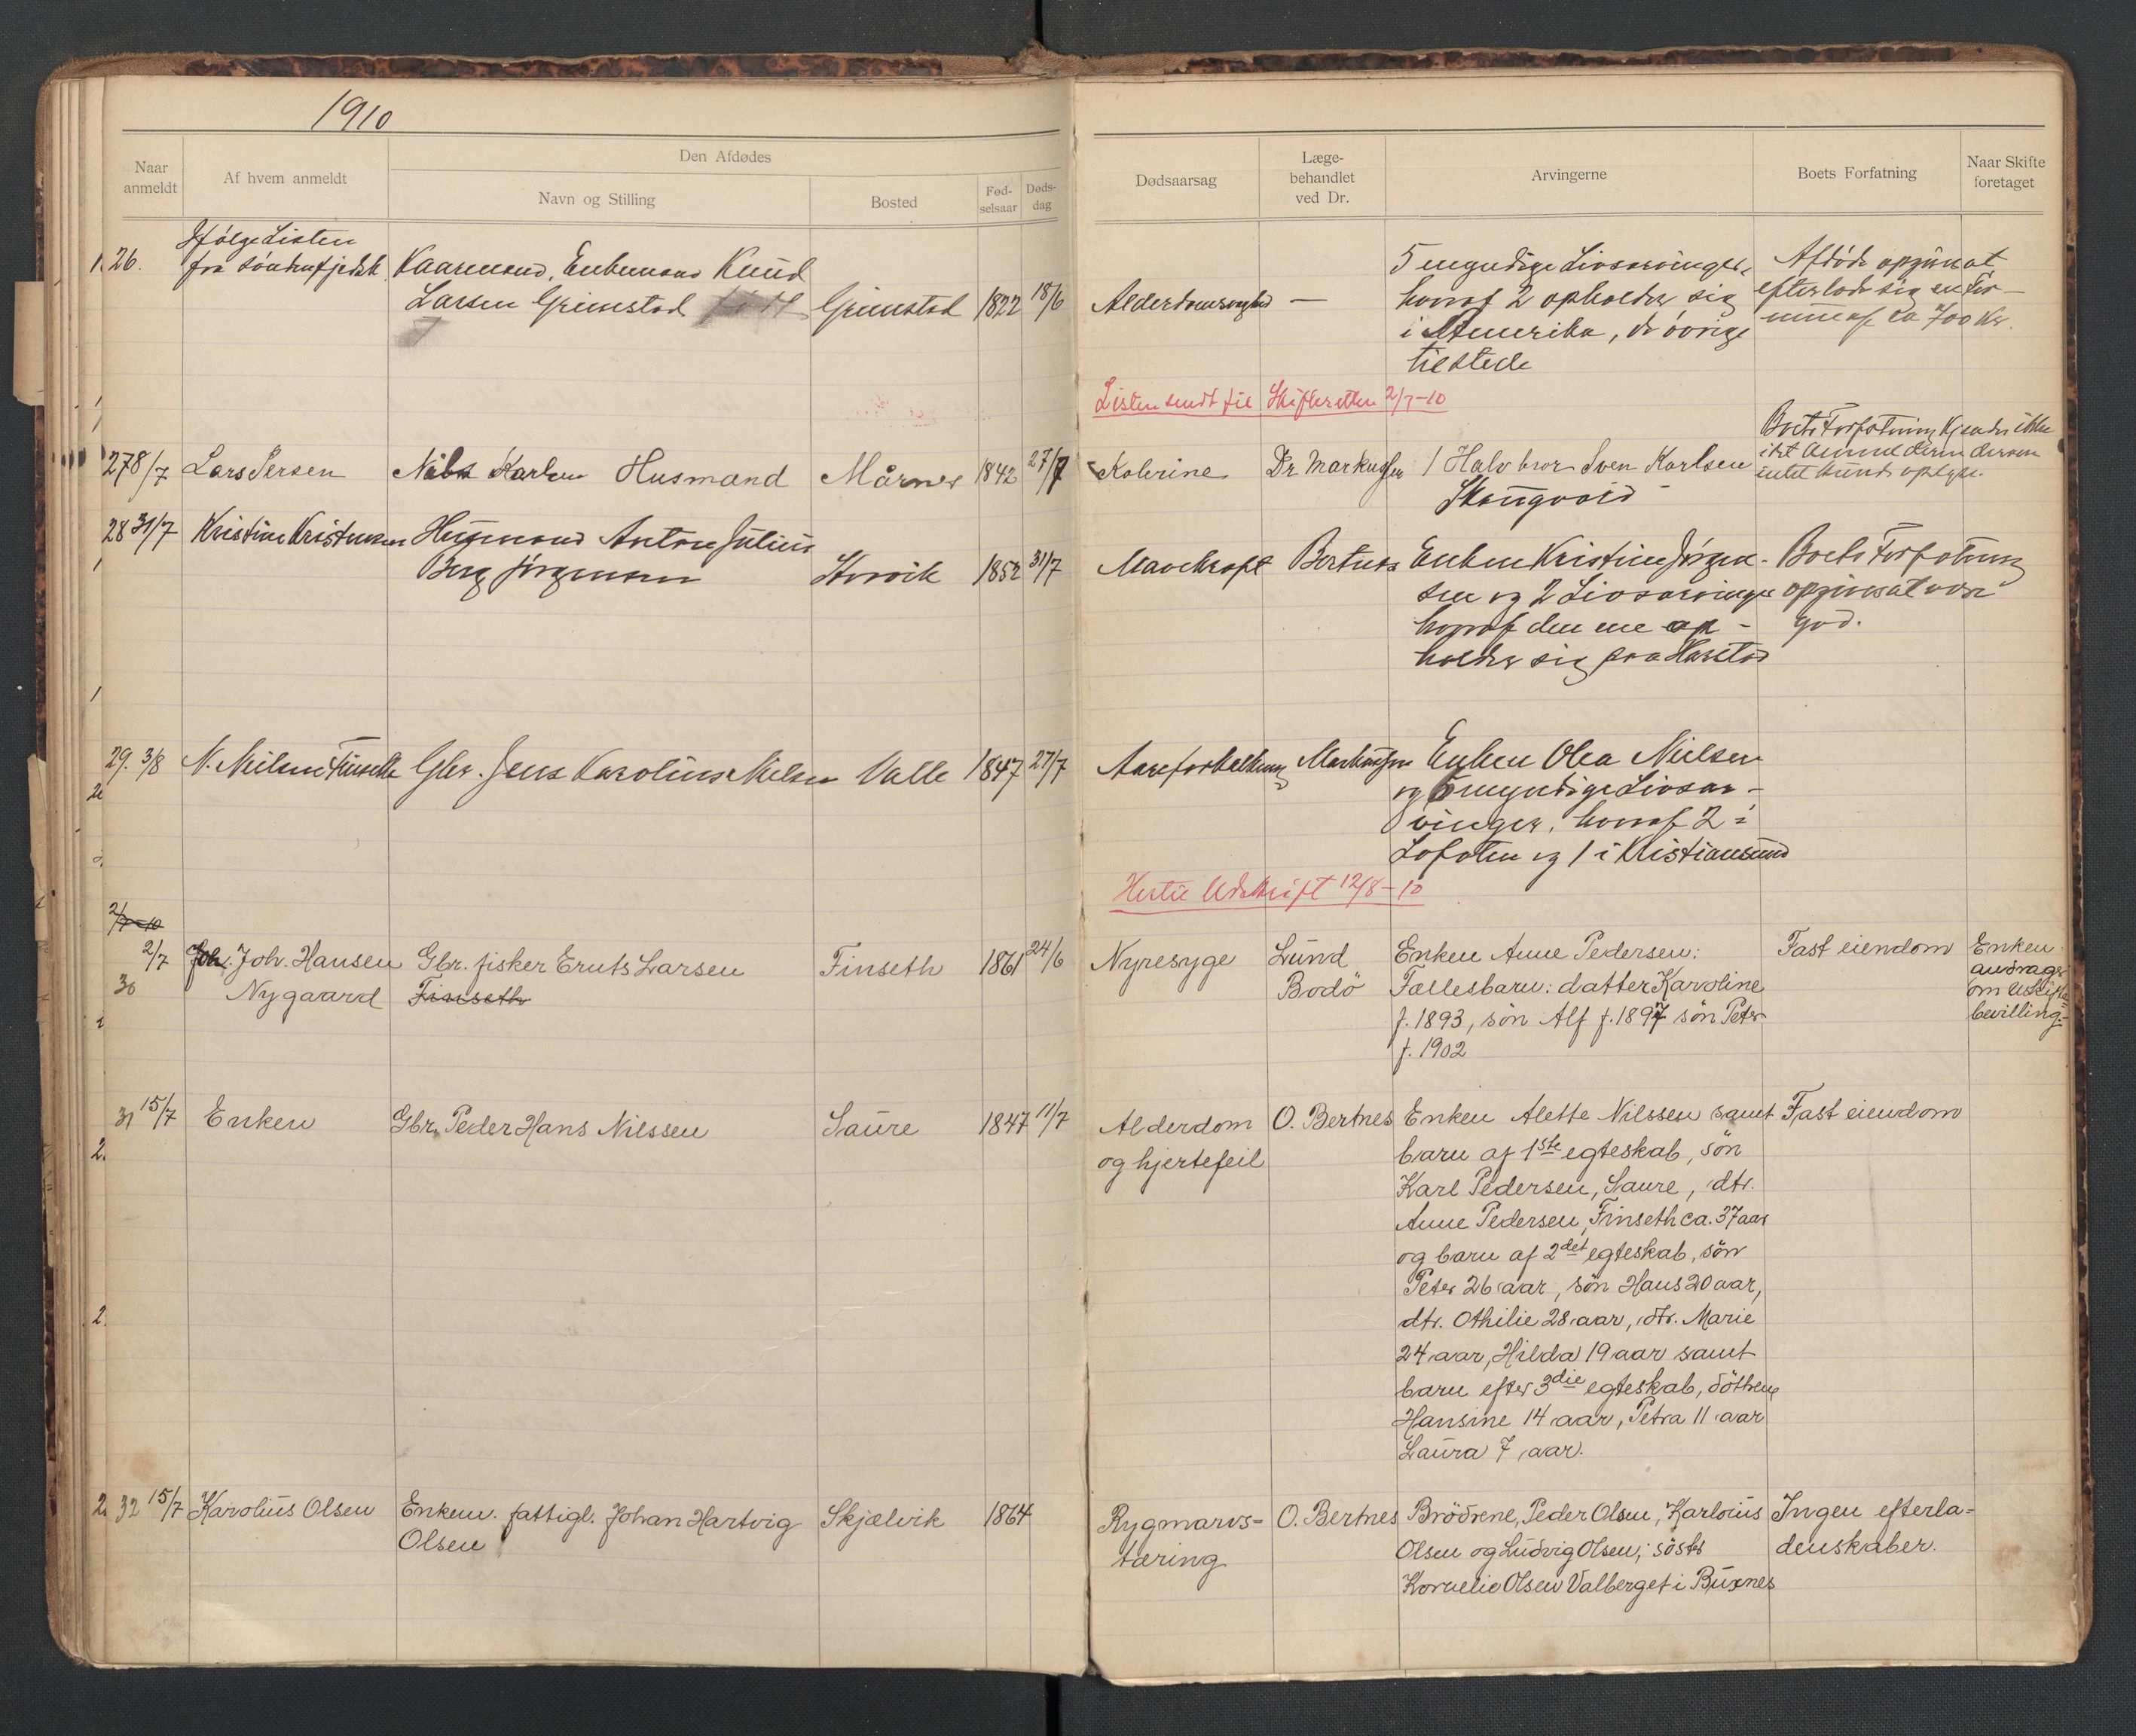 1910
Naar anmeldt
Af hvem anmeldt
Den Afdødes
Navn og Stilling
Bosted
Fød-
selsaar
Døds-
dag
Dødsaarsag
Læge-
behandlet
ved Dr.
Arvingerne
Boets Forfatning
Naar Skifte
foretaget
26.
Ifølge Listen
fra
Kaarmand, Enkemand Knud
Larsen Grimstad
Grimstad
1822
18/6
—
5 myndige Livsarvinger,
hvoraf 2 opholder sig
i Amerika, de øvrige
tilstede
Afdøde opgives at
efterlade sig en For-
mue af ca 700 Kr.
Listen sendt til Skifteretten 2/7-10
27 8/7
Lars Persen
Nils Karlsen Husmand
Mårnes
1842
27/7
Kolerine
Dr Markussen
1 Halvbror Sven Karlsen
Skaugvold
Boets Forfatning kjendes ikke
intet kunde oplyse.
28 31/7
Kristine Kristensen
Husmand Anton Julius
Berg Jørgensen
Storvik
1852
31/7
Mavekræft
Bertnes
Enken Kristine Jørgen-
sen og 2 Livsarvinger
hvoraf den ene op-
holder sig paa Harstad
Boets Forfatning
opgives at være
god.
29. 3/8
N. Nielsen Finseth
Gbr. Jens Karolius Nielsen
Valle
1847
27/7
Aareforkalkning
Markussen
Enken Olea Nielsen
og 5 myndige Livsar-
vinger, hvoraf 2 i
Lofoten og 1 i Kristiansund
Hertil Udskrift 12/8-10
2/7-10
2/7
30
Joh. Joh. Hansen
Nygaard
Gbr. fisker Eruts Larsen
Finseth
Finseth
1861
24/6
Nyresyge
Lund
Bodö
Enken Anne Pedersen:
Fællesbarn: datter Karoline
f. 1893, sön Alf f. 1897 sön Peter
f. 1902
Fast eiendom
Enken
andrager
om uskifte-
bevilling.-
31 15/7
Enken
Gbr. Peder Hans Nilssen
Saure
1847
11/7
Alderdom
og hjertefeil
O. Bertnes
Enken Alette Nilssen samt
barn af 1ste egteskab, sön
Karl Pedersen, Saure, dtr.
Anne Pedersen, Finseth ca. 37 aar
og barn af 2det egteskab, sön
Peter 26 aar, sön Hans 20 aar,
dtr. Othilie 28 aar, dtr. Marie
24 aar, Hilda 19 aar samt
barn efter 3die egteskab, döttrene
Hansine 14 aar, Petra 11 aar
Laura 7 aar.
Fast eiendom
32 15/7
Karolius Olsen
Enkem. fattigl. Johan Hartvig
Olsen
Skjælvik
1864
Rygmarvs-
tæring
O. Bertnes
Brödrene, Peder Olsen, Karlouis
Olsen og Ludvig Olsen; söster
Kornelie Olsen Valberget i Buxnes
Ingen efterla-
denskaber.